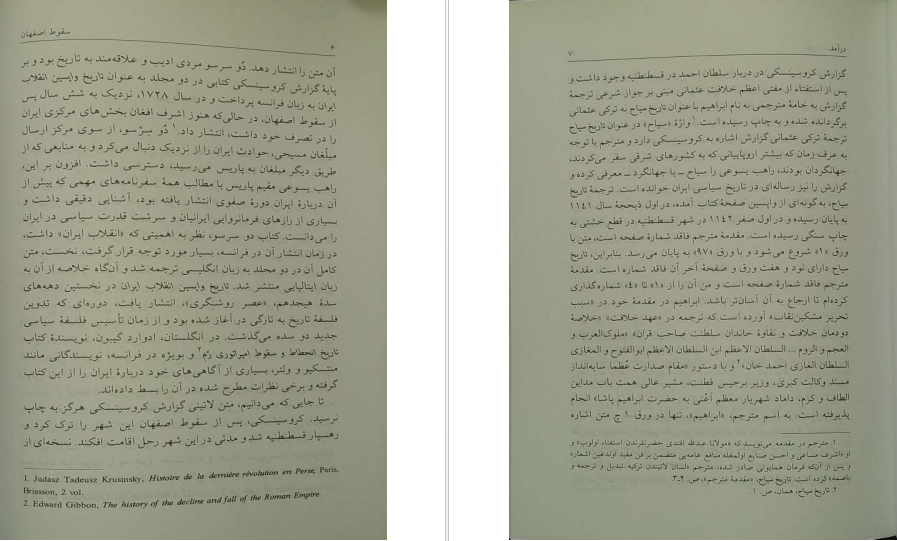 سقوط اصفهان
۶
آن متن را انتشار دهد. دُو سرسو مردی ادیب و علاقه‌مند به تاریخ بود و بر
پایهٔ گزارش کروسینسکی کتابی در دو مجلد به عنوان تاریخ واپسین انقلاب
ایران به زبان فرانسه پرداخت و در سال ۱۷۲۸، نزدیک به شش سال پس
از سقوط اصفهان، در حالی‌که هنوز اشرف افغان بخش‌های مرکزی ایران
را در تصرف خود داشت، انتشار داد.۱ دُو سِرْسو، از سوی مرکز ارسال
مبلّغان مسیحی، حوادث ایران را از نزدیک دنبال می‌کرد و به منابعی که از
طریق دیگر مبلغان به پاریس می‌رسید، دسترسی داشت. افزون بر این،
راهب یسوعی مقیم پاریس با مطالب همهٔ سفرنامه‌های مهمی که پیش از
آن دربارهٔ ایران دورهٔ صفوی انتشار یافته بود، آشنایی دقیقی داشت و
بسیاری از رازهای فرمانروایی ایرانیان و سرشت قدرت سیاسی در ایران
را می‌دانست. کتاب دو سرسو، نظر به اهمیتی که «انقلاب ایران» داشت،
در زمان انتشار آن در فرانسه، بسیار مورد توجه قرار گرفت، نخست، متن
کامل آن در دو مجلد به زبان انگلیسی ترجمه شد و آن‌گاه خلاصه از آن به
زبان ایتالیایی منتشر شد. تاریخ واپسین انقلاب ایران در نخستین دهه‌های
سدهٔ هیجدهم، «عصر روشنگری»، انتشار یافت، دوره‌ای که تدوین
فلسفهٔ تاریخ به تازگی در آغاز شده بود و از زمان تأسیس فلسفهٔ سیاسی
جدید دو سده می‌گذشت. در انگلستان، ادوارد گیبون، نویسندهٔ کتاب
تاریخ انحطاط و سقوط امپراتوری رُم۲ و بویژه در فرانسه، نویسندگانی مانند
منتسکیو و ولتر، بسیاری از آگاهی‌های خود دربارهٔ ایران را از این کتاب
گرفته و برخی نظرات مطرح شده در آن را بسط داده‌اند.
تا جایی که می‌دانیم، متن لاتینی گزارش کروسینسکی هرگز به چاپ
نرسید. کروسینسکی، پس از سقوط اصفهان این شهر را ترک کرد و
رهسپار قسطنطنیه شد و مدتی در این شهر رحل اقامت افکند. نسخه‌ای از
1. Judasz Tadeusz Krusinsky, Histoire de la dernière révolution en Perse, Paris,
Briasson, 2 vol.
2. Edward Gibbon, The history of the decline and fall of the Roman Empire.
درآمد
۷
گزارش کروسینسکی در دربار سلطان احمد در قسطنطنیه وجود داشت و
پس از استفتاء از مفتی اعظم خلافت عثمانی مبنی بر جواز شرعی ترجمهٔ
گزارش به خامهٔ مترجمی به نام ابراهیم با عنوان تاریخ سیاح به ترکی عثمانی
برگردانده شده و به چاپ رسیده است.۱ واژهٔ «سیاح» در عنوان تاریخ سیاح
ترجمهٔ ترکی عثمانی گزارش اشاره به کروسینسکی دارد و مترجم با توجه
به عرف زمان که بیشتر اروپاییانی که به کشورهای شرقی سفر می‌کردند،
جهانگردان بودند، راهب یسوعی را سیاح ــ یا جهانگرد ــ معرفی کرده و
گزارش را نیز رساله‌ای در تاریخ سیاسی ایران خوانده است. ترجمهٔ تاریخ
سیاح، به‌گونه‌ای از واپسین صفحهٔ کتاب آمده، در اول ذیحجهٔ سال ۱۱۴۱
به پایان رسیده و در اول صفر ۱۱۴۲ در شهر قسطنطنیه در قطع خشتی به
چاپ سنگی رسیده است. مقدمهٔ مترجم فاقد شمارهٔ صفحه است، متن با
ورق «۱» شروع می‌شود و با ورق «۹۷» به پایان می‌رسد. بنابراین، تاریخ
سیاح دارای نود و هفت ورق و صفحهٔ آخر آن فاقد شماره است. مقدمهٔ
مترجم فاقد شمارهٔ صفحه است و من آن را از «۱» تا «۴» شماره‌گذاری
کرده‌ام تا ارجاع به آن آسان‌تر باشد. ابراهیم در مقدمهٔ خود در «سبب
تحریر مشکین‌نقاب» آورده است که ترجمه در «عهد خلافت» «خلاصهٔ
دودمان خلافت و نقاوهٔ خاندان سلطنت صاحب قران» «ملوک‌العرب و
العجم و الروم ... السلطان الاعظم ابن السلطان الاعظم ابوالفتوح و المغازی
السلطان الغازی احمد خان»۲ و با دستور «مقام صدارت عُظما سایه‌انداز
مسند وکالت کبری، وزیر برجیس فطنت، مشیر عالی همت باب مداین
الطاف و کرم، داماد شهریار معظم أعْنی به حضرت ابراهیم پاشا» انجام
پذیرفته است. به اسم مترجم، «ابراهیم»، تنها در ورق ۱ چ متن اشاره
۱. مترجم در مقدمه می‌نویسد که «مولانا عبدالله افندی حضرتلرندن استفتاء اولوب» و
او «اشرف مساعی و احسن صنایع اولمغله منافع عامه‌یی متضمن بر فن مفید اولدغین اشعار»
و پس از آنکه فرمان همایونی صادر شده، مترجم «لسان لاتیندن ترکیه تبدیل و ترجمه و
باصمه» کرده است. تاریخ سیاح، «مقدمهٔ مترجم»، ص. ۴ـ۳.
۲. تاریخ سیاح، همان، ص. ۱.